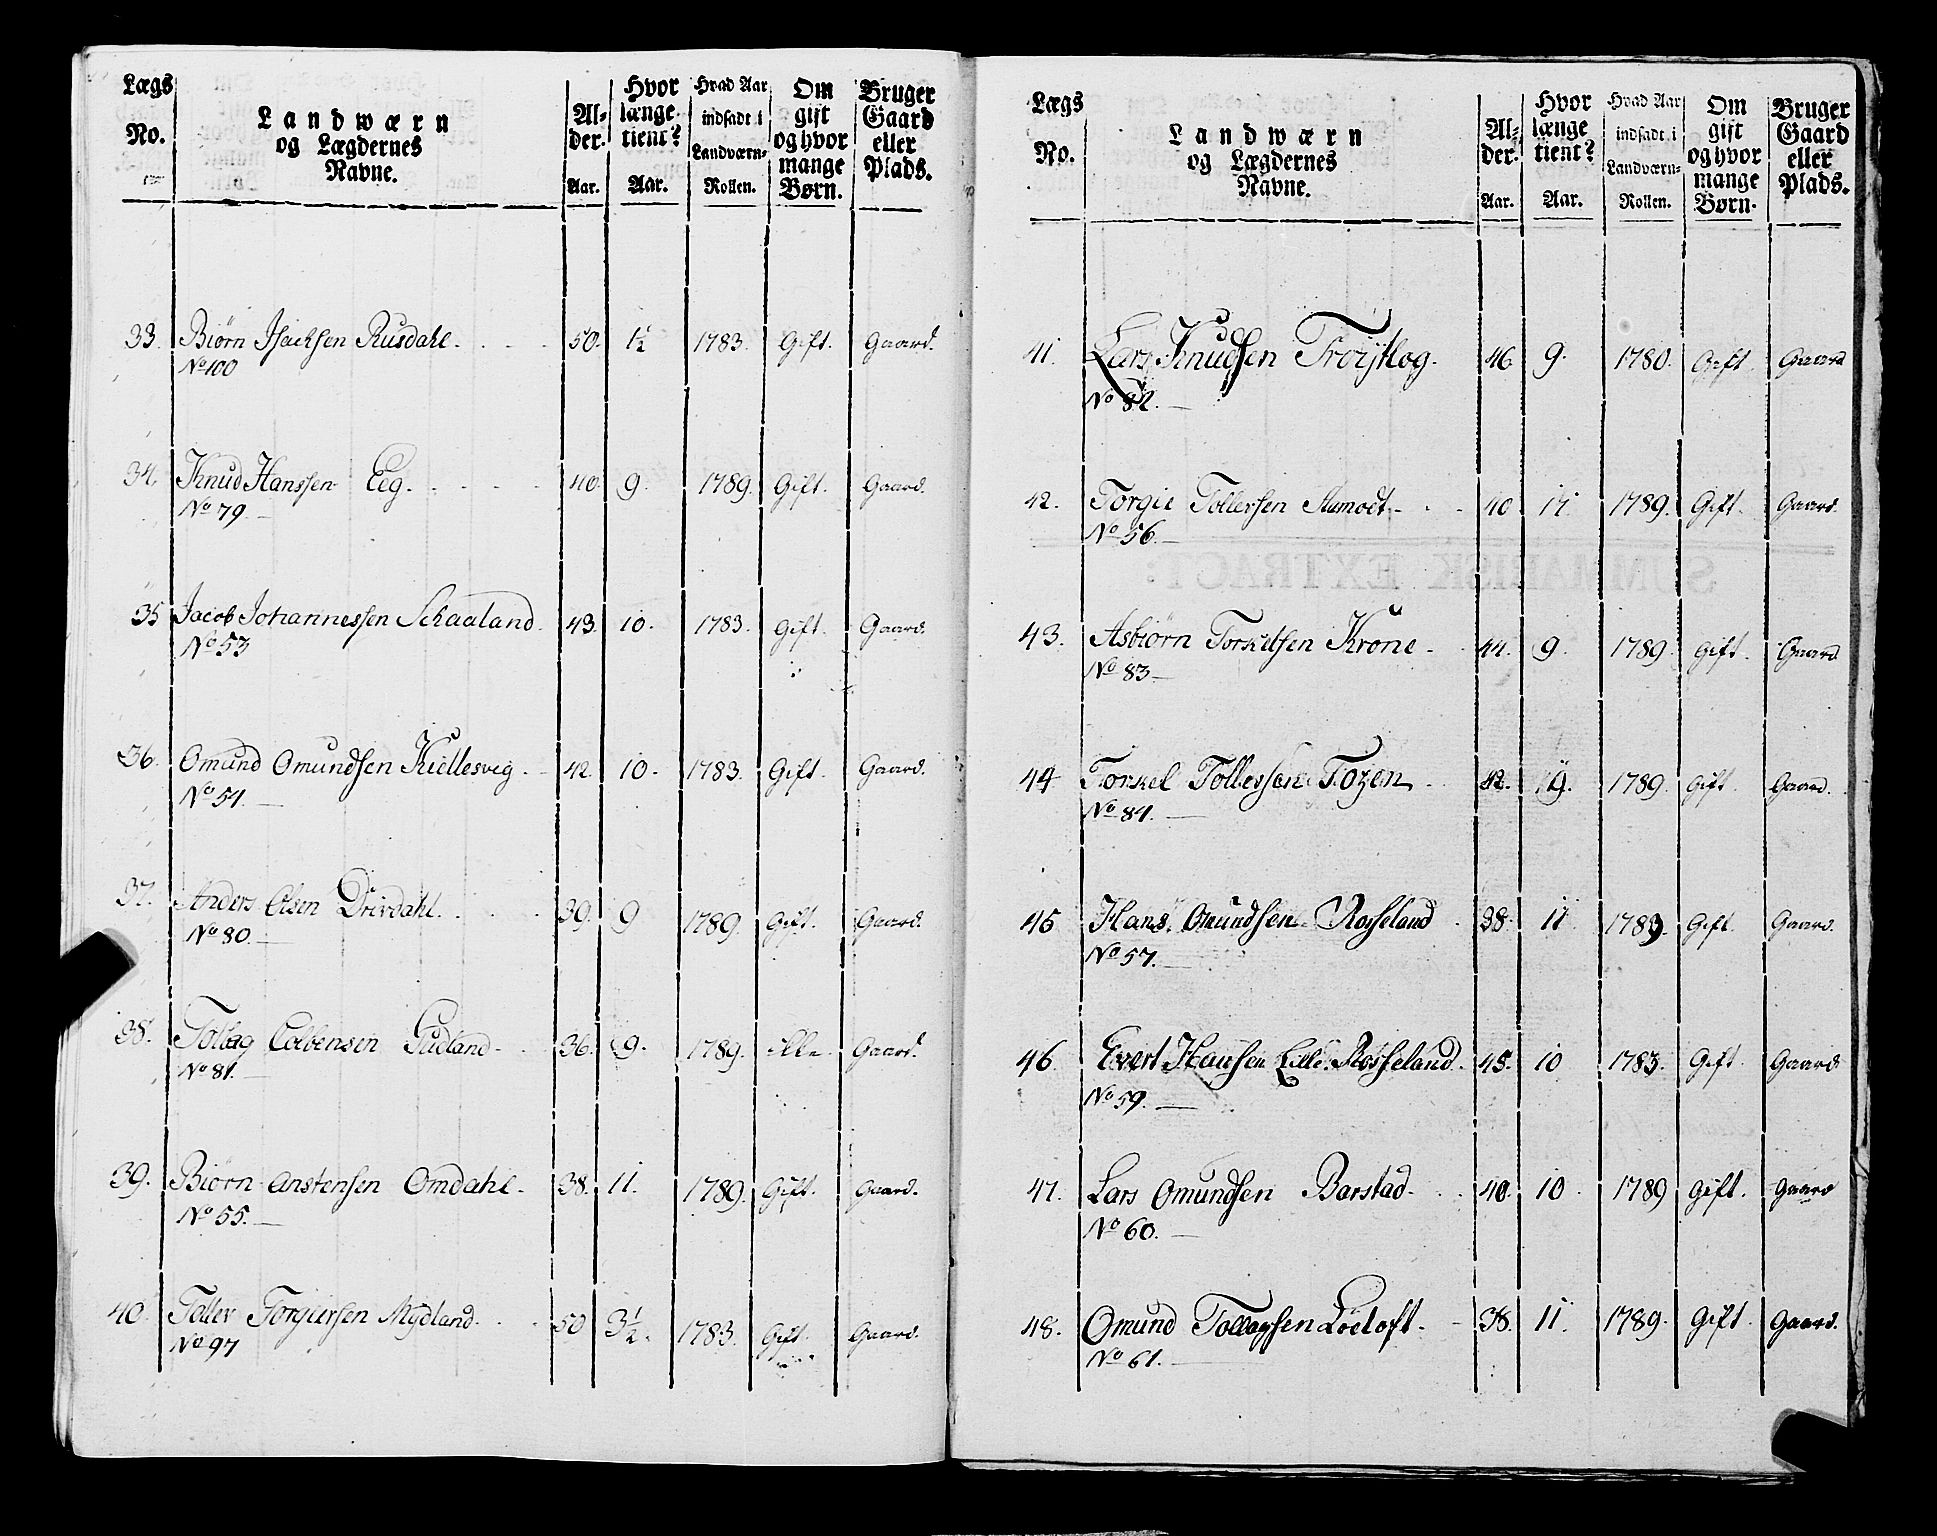 Lægs No. | Landwærn og Lægdernes Navne. | Al-der. Aar. | Hvor længe tient? Aar. | Hvad Aar indsadt i Landværn-Rollen. | Om gift og hvor mange Børn. | Bruger Gaard eller Plads.
33. Biørn Isachsen Rusdahl. 50. 1½ 1783. Gift. Gaard.
No 100
34. Knud Hanssen Eeg. 40. 9. 1789. Gift. Gaard.
No 79.
35 Jacob Johannessen Schaaland. 43. 10. 1783. Gift. Gaard.
No 53
36. Omund Omundsen Kiellesvig. 42 10. 1783. Gift. Gaard.
No 54.
37. Anders Olsen Drivdahl. 39. 9 1789. Gift. Gaard.
No 80.
38. Tollag Colbensen Gudland. 36. 9. 1789. Gaard.
No 81.
39. Biørn Anstensen Omdahl. 38. 11. 1789. Gift. Gaard.
No 55.
40. Toller Torgiersen Mydland. 50 3½. 1783. Gift. Gaard.
No 97
Lægs No. | Landwærn og Lægdernes Navne. | Al-der. Aar. | Hvor længe tient? Aar. | Hvad Aar indsadt i Landværn-Rollen. | Om gift og hvor mange Børn. | Bruger Gaard eller Plads.
41. Lars Knudsen 46 9. 1780. Gift. Gaard
No 82.
42. Torgie Tollersen Aamodt. 40 1789. Gift. Gaard.
No 56.
43. Asbiørn Torkelsen Krone. 44. 9. 1789. Gift. Gaard
No 83
44 Torkel Tollefsen 42. 9. 1789. Gift. Gaard.
No 84.
45 Hans Omundsen Rosseland 38. 11 1789. Gift. Gaard.
No 57.
46. Evert Hansen Lille Rosseland. 45. 10 1783. Gift. Gaard
No 59.
47. Lars Omundsen Barstad. 40. 10 1789 Gift. Gaard
No 60.
48. Omund Tollagsen Lædoft. 38. 11. 1789. Gift. Gaard.
No 61.